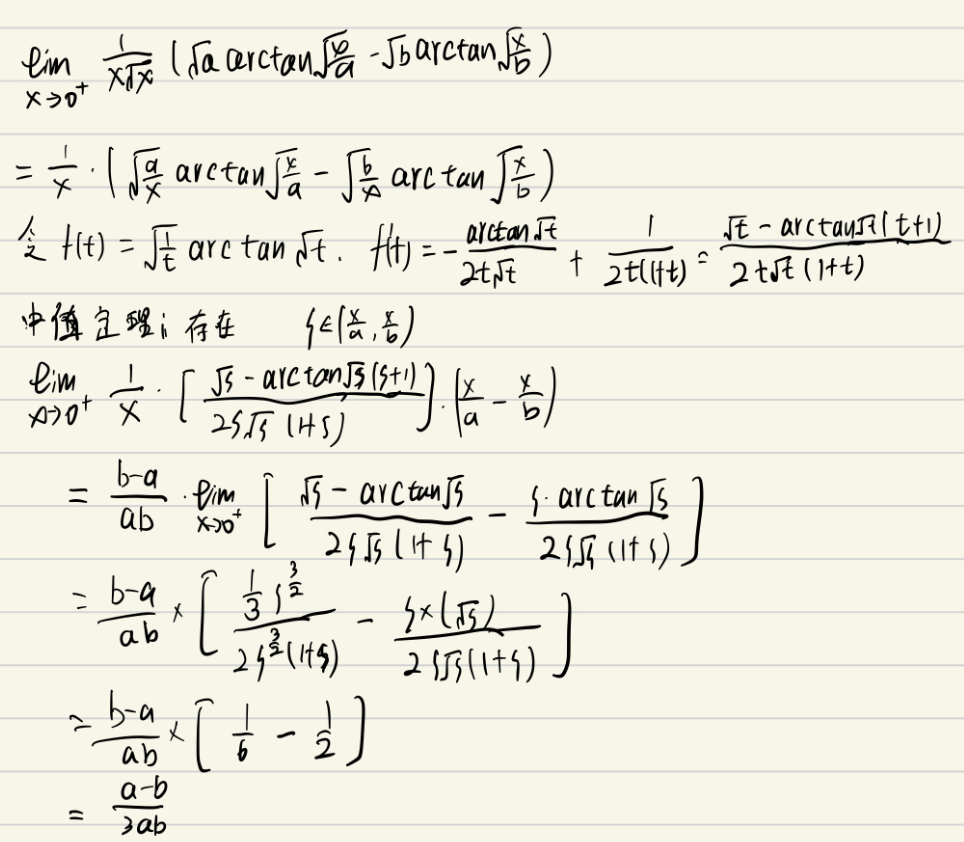 lim x→0⁺ 1/(x√x) (√a arctan√(x/a) - √b arctan√(x/b))
= 1/x · (√(a/x) arctan√(x/a) - √(b/x) arctan√(x/b))
令 f(t) = √(1/t) arctan √t. f'(t) = - arctan√t/(2t√t) + 1/(2t(1+t)) = (√t - arctan√t(t+1))/(2t√t(1+t))
中值定理; 存在 ξ∈(x/a, x/b)
lim x→0⁺ 1/x · [(√ξ - arctan√ξ(ξ+1))/(2ξ√ξ(1+ξ))] · (x/a - x/b)
= (b-a)/ab · lim x→0⁺ [(√ξ - arctan√ξ)/(2ξ√ξ(1+ξ)) - (ξ·arctan√ξ)/(2ξ√ξ(1+ξ))]
= (b-a)/ab × [(1/3 ξ^(3/2))/(2ξ^(3/2)(1+ξ)) - (ξ×(√ξ))/(2ξ√ξ(1+ξ))]
= (b-a)/ab × [1/6 - 1/2]
= (a-b)/3ab